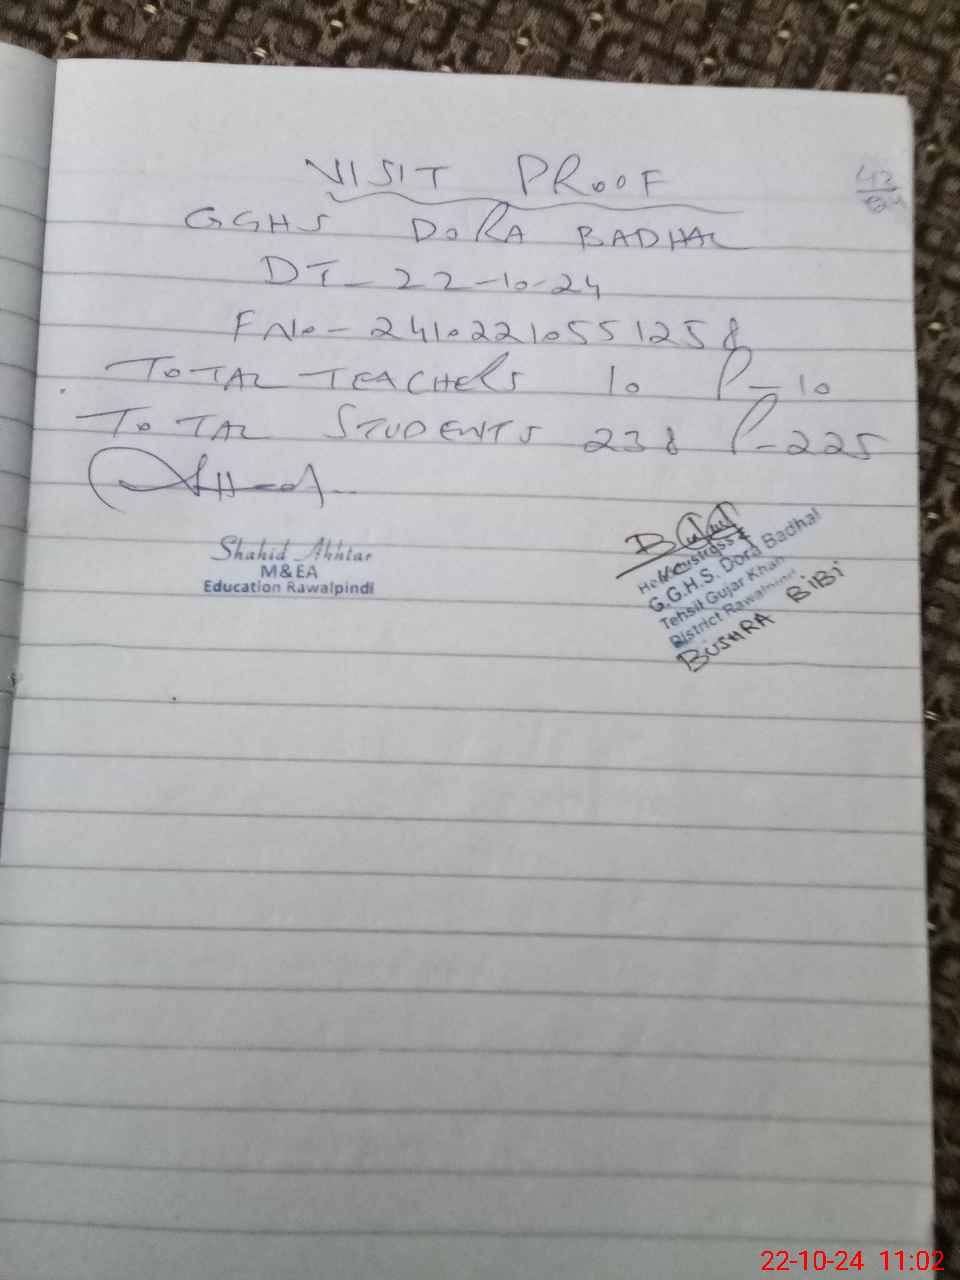 VISIT PROOF
GGHS DORA BADHAL
DT- 22-10-24
FNo- 24102210551258
TOTAL TEACHERS 10 P-10
TOTAL STUDENTS 238 P-225
Shahid Akhtar
M&EA
Education Rawalpindi
Headmistress
G.G.H.S. Dora Badhal
Tehsil Gujar Khan
District Rawalpindi
BUSHRA BIBI
22-10-24 11:02